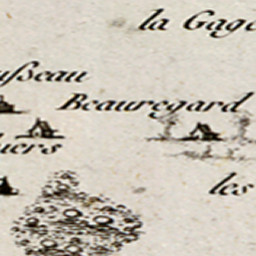 la Gage
ußeau
Beauregard
uers
les